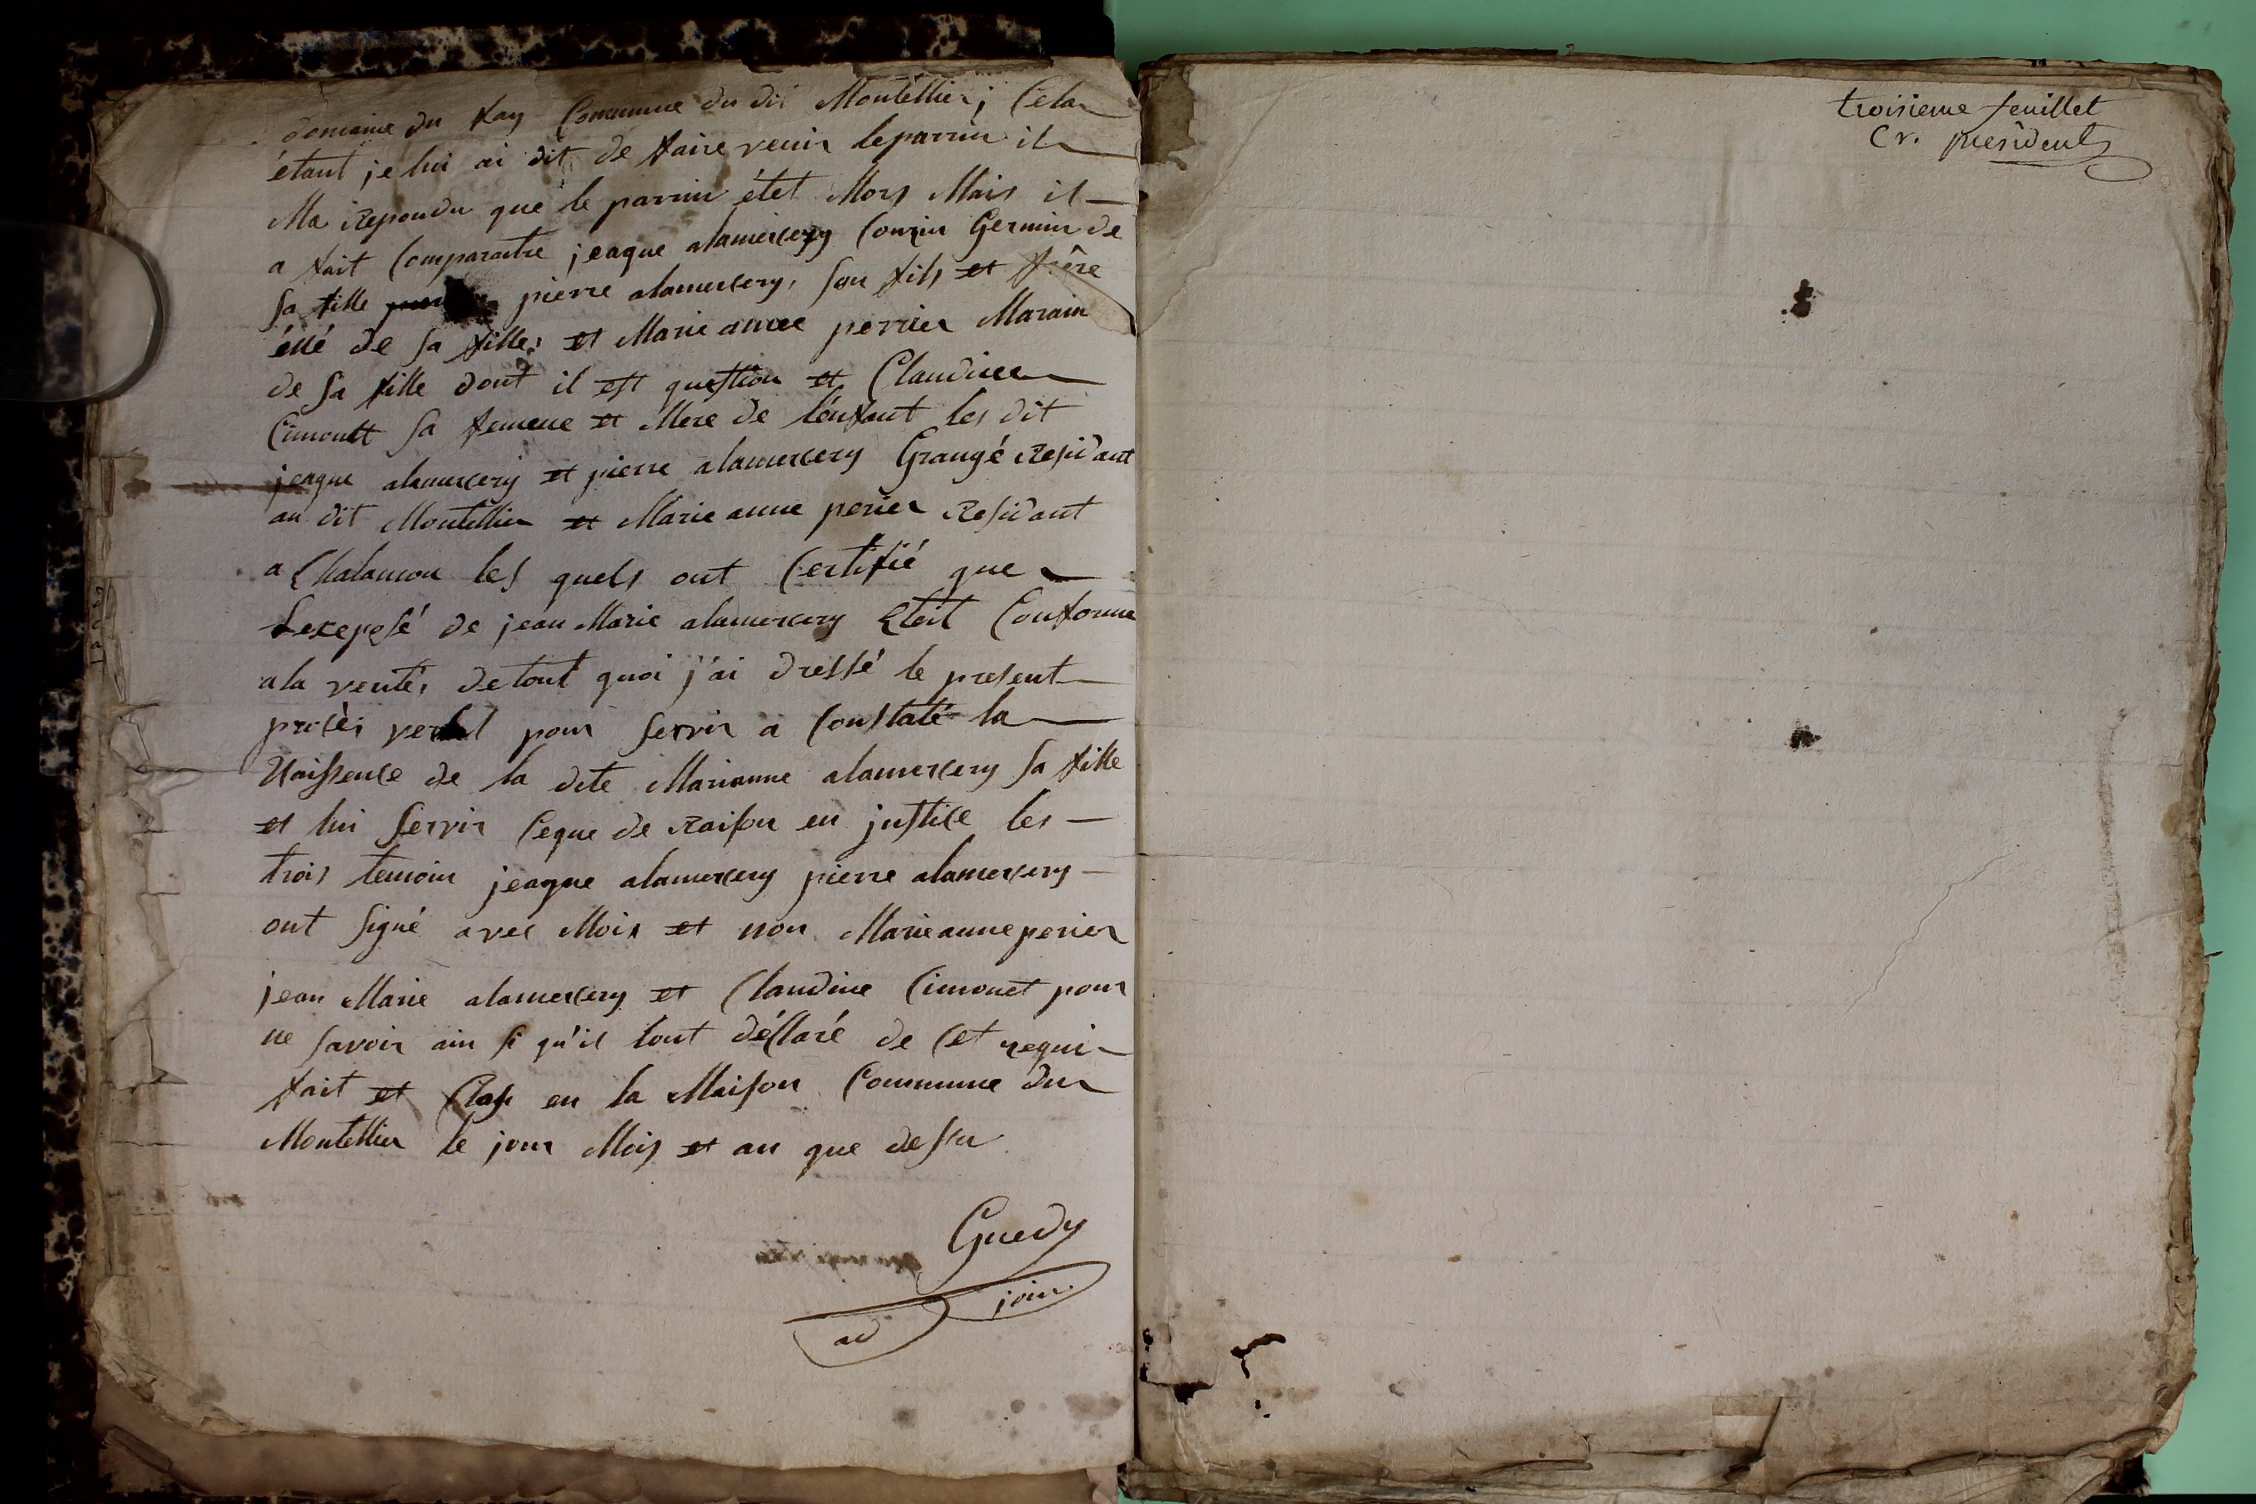 domaine du fay Commune du dit Montellier; Cela
étant je lui ai dit de faire venir le parrin il
Ma repondu que le parrin étet Mors Mais il
a fait Comparaitre jeaque alamercery Couzin Germin de
sa fille pierre alamercery, son fils et frère
éllé de sa fille, et Marie anne perrier Marain
de sa fille dont il est question et Claudine
Cimonet sa femme et Mere de l'enfant les dit
jeaque alamercery et pierre alamercery Grangé Residant
au dit Montellier et Marie anne perier Residant
a Chalamon les quels ont Certifié que
Lexeposé de jean Marie alamercery Etoit Conforme
a la verité, de tout quoi j'ai dressé le present
procès verbal pour servir a Constaté la
Naissence de la dite Marianne alamercery sa fille
et lui servir Ceque de Raison en justice les
trois temoin jeaque alamercery pierre alamercery
ont signé avec Moix et non Marie anne perier
jean Marie alamercery et Claudine Cimonet pour
ne savoir ain si qu'il lont déclaré de Cet requi
fait et Clos en la Maison Commune du
Montellier le jour Mois et an que dessu
Guedy
ad join
troisieme feuillet
Cr. président